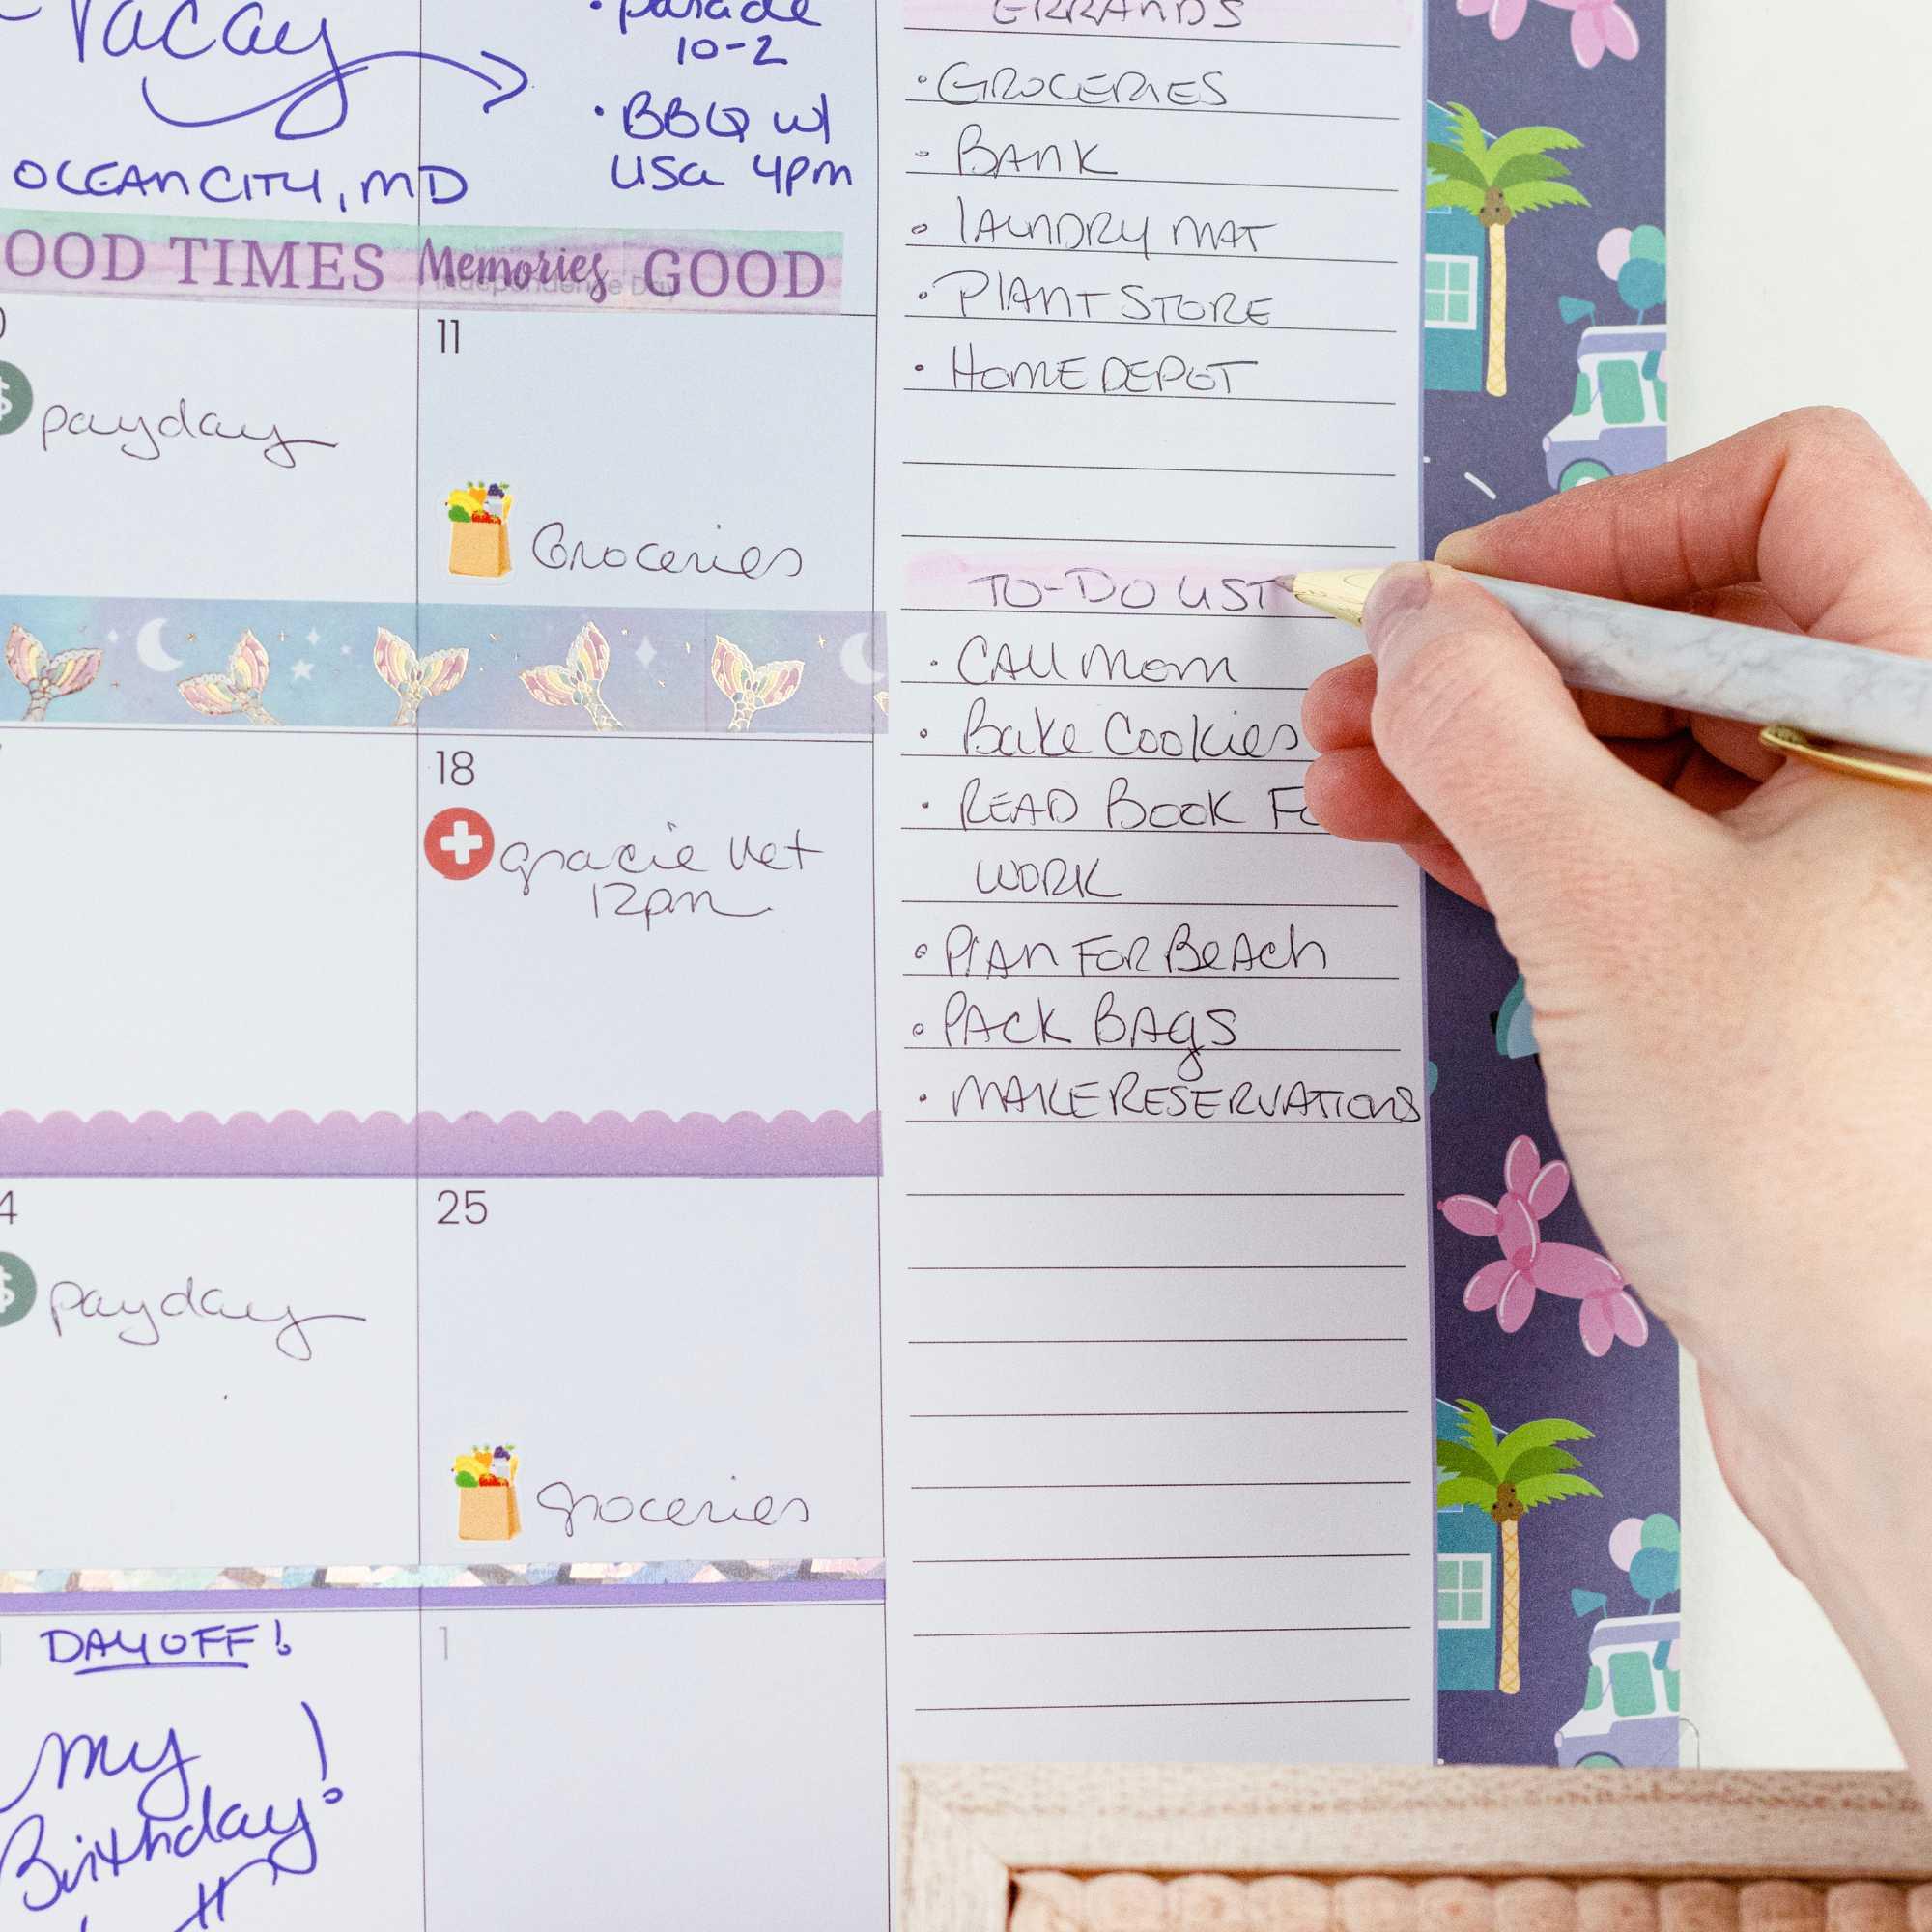 Vacay
OCEAN CITY, MD
• parade
10-2
• BBQ w/
Lisa 4pm
OOD TIMES Memories GOOD
Independence Day
payday
11
Groceries
18
gracie vet
12pm
payday
25
groceries
DAY OFF!
my
Birthday!
1
ERRANDS
• GROCERIES
• BANK
• LAUNDRY MAT
• PLANT STORE
• HOME DEPOT
TO-DO LIST
• CALL MOM
• Bake Cookies
• READ BOOK FO
WORK
• PLAN FOR BEACH
• PACK BAGS
• MAKE RESERVATIONS